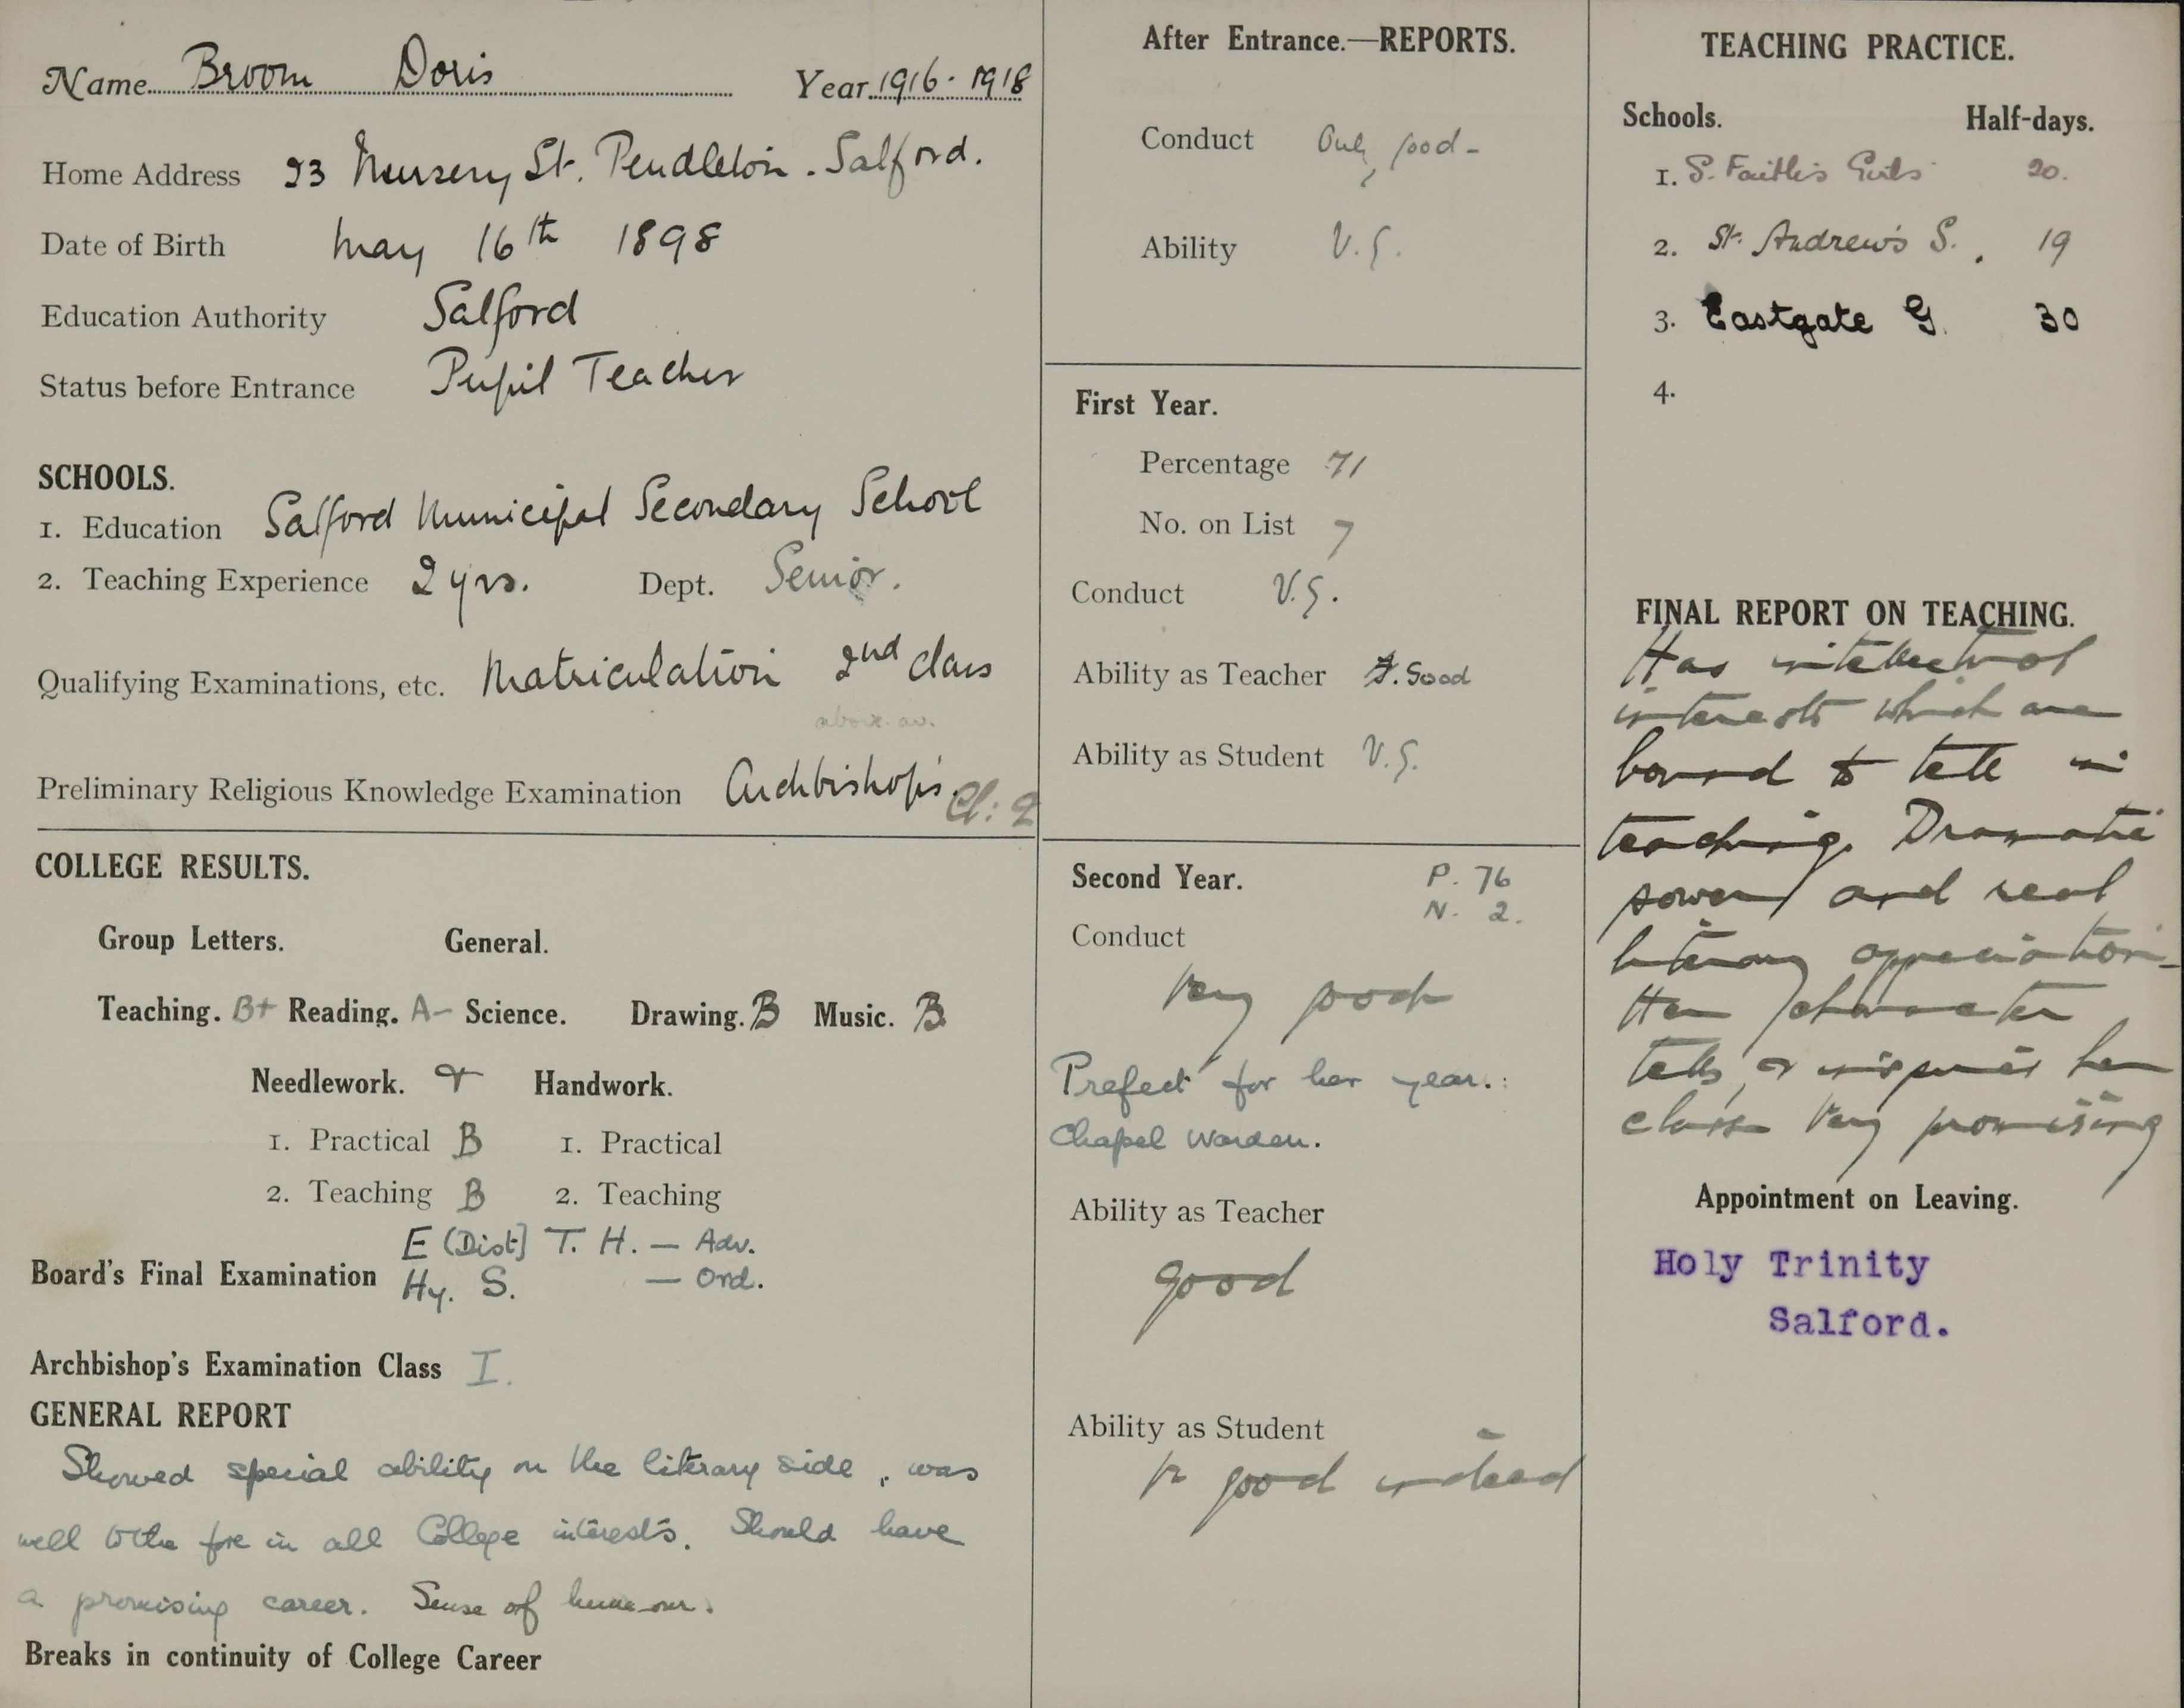 Name Broom Doris Year 1916-1918
Home Address 23 Nursery St. Pendleton. Salford.
Date of Birth May 16th 1898
Education Authority Salford
Status before Entrance Pupil Teacher
SCHOOLS.
1. Education Salford Municipal Secondary School
2. Teaching Experience 2 yrs. Dept. Senior.
Qualifying Examinations, etc. Matriculation 2nd class
above av.
Preliminary Religious Knowledge Examination Archbishop's. Cl: 2
COLLEGE RESULTS.
Group Letters. General.
Teaching. B+ Reading. A- Science. Drawing. B Music. B
Needlework. Handwork.
1. Practical B 1. Practical
2. Teaching B 2. Teaching
E (Dist) T. H. — Adv.
Board's Final Examination Hy. S. — Ord.
Archbishop's Examination Class I.
GENERAL REPORT
Showed special ability on the literary side, was
well to the fore in all College interests. Should have
a promising career. Sense of humour.
Breaks in continuity of College Career
After Entrance.—REPORTS.
Conduct Only good -
Ability V.G.
First Year.
Percentage 71
No. on List 7
Conduct V.G.
Ability as Teacher F. Good
Ability as Student V.G.
Second Year. P. 76
N. 2.
Conduct
Very good
Prefect for her year.:
Chapel Warden.
Ability as Teacher
good
Ability as Student
V. good indeed
TEACHING PRACTICE.
Schools. Half-days.
1. S. Faith's Girls 20.
2. St. Andrew's S. 19
3. Eastgate G. 30
4.
FINAL REPORT ON TEACHING.
Has intellectual
interests which are
bound to tell in
teaching. Dramatic
power and real
literary appreciation -
Her character
tells, & inspires her
class Very promising
Appointment on Leaving.
Holy Trinity
Salford.